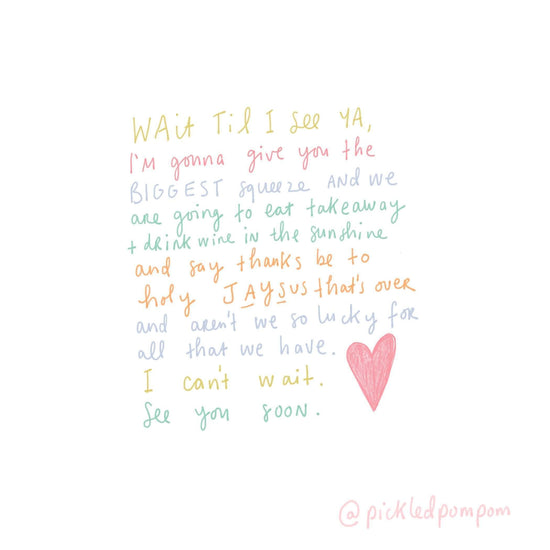 WAit Til I see YA,
I'm gonna give you the
BIGGEST squeeze AND we
are going to eat takeaway
+ dRink wine iN the sunshine
and say thanks be to
holy JAYSUS that's oveR
and aren't we so lucky foR
all that we have.
I can't wait.
See you sooN.
@pickledpompom